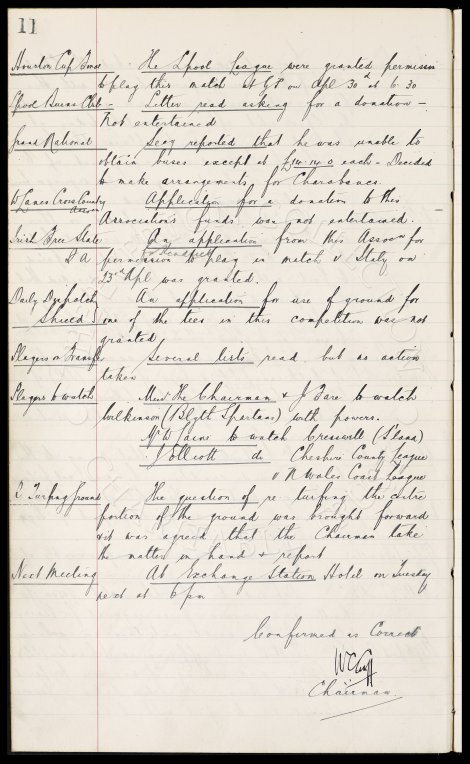 11
Houston Cup
The L'pool League were granted permission
to play this match at G.P on Apl 30th at 6.30
L'pool Club - Letter read asking for a donation -
Not entertained
Grand National Secy reported that he was unable to
obtain buses except at £14.14.0 each - Decided
to make arrangements for Charabancs.
W Lancs Cross Country Application for a donation to this
Assocn
Association's funds was not entertained.
Irish Free State An application from this Assocn for
for Dunfield
F A permission to play in match v Italy on
23rd Apl was granted.
Daily Dispatch An application for use of ground for
Shield one of the ties in this competition was not
granted
Players on Transfer Several lists read but no action
taken
Players to watch The Chairman & J Fare to watch
Wilkinson (Blyth Spartans) with powers.
Mr W Laine to watch Cresswell (Staffs)
J Elliott do Cheshire County League
v N Wales Coast League
Turfing Ground The question of re-turfing the entire
portion of the ground was brought forward
& it was agreed that the Chairman take
the matter in hand & report
Next Meeting At Exchange Station Hotel on Tuesday
next at 6 pm
Confirmed as Correct
W C Cuff
Chairman.